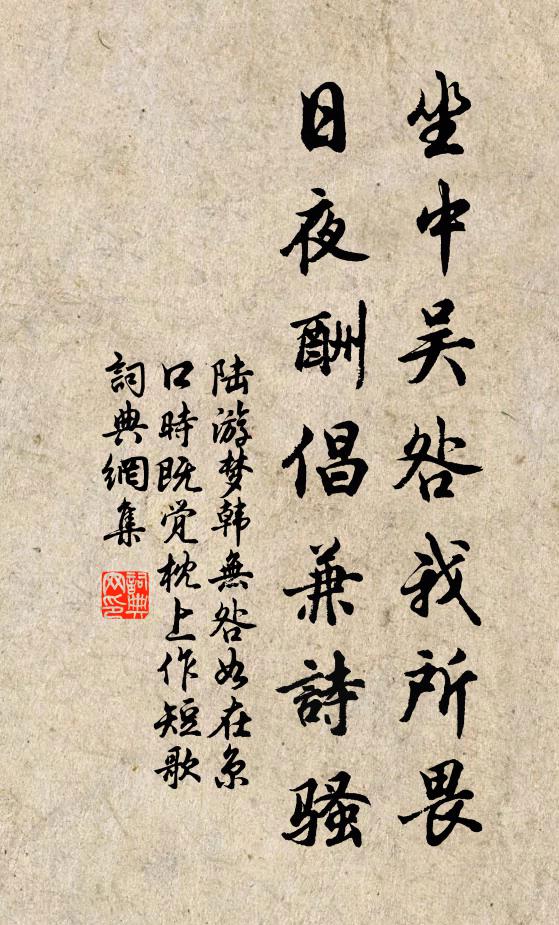 坐中吴咎我所畏
日夜酬倡兼詩骚
陆游梦韩無咎如在京
口時既觉枕上作短歌
詞典網集
詞典網印